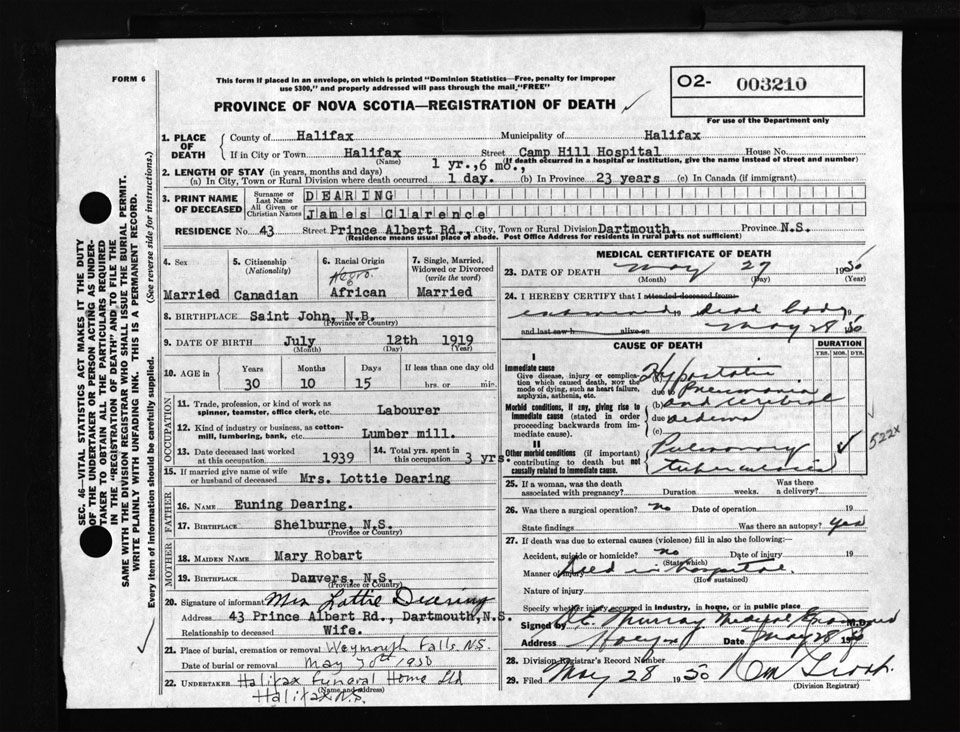 FORM 6
This form if placed in an envelope, on which is printed "Dominion Statistics—Free, penalty for improper
use $300," and properly addressed will pass through the mail "FREE"
O2- 003210
For use of the Department only
PROVINCE OF NOVA SCOTIA—REGISTRATION OF DEATH
1. PLACE OF DEATH
County of Halifax Municipality of Halifax
If in City or Town Halifax Street Camp Hill Hospital House No.
(Name) (If death occurred in a hospital or institution, give the name instead of street and number)
2. LENGTH OF STAY (in years, months and days) 1 yr., 6 mo.,
(a) In City, Town or Rural Division where death occurred 1 day. (b) In Province 23 years (c) In Canada (if immigrant)
3. PRINT NAME OF DECEASED
Surname or Last Name DEARING
All Given or Christian Names James Clarence
RESIDENCE No. 43 Street Prince Albert Rd., City, Town or Rural Division Dartmouth, Province N.S.
(Residence means usual place of abode. Post Office Address for residents in rural parts not sufficient)
4. Sex Married
5. Citizenship (Nationality) Canadian
6. Racial Origin Negro. African
7. Single, Married, Widowed or Divorced (write the word) Married
8. BIRTHPLACE Saint John, N.B.
(Province or Country)
9. DATE OF BIRTH July 12th 1919
(Month) (Day) (Year)
10. AGE in Years Months Days If less than one day old
30 10 15 hrs. or min.
OCCUPATION
11. Trade, profession, or kind of work as spinner, teamster, office clerk, etc. Labourer
12. Kind of industry or business, as cotton-mill, lumbering, bank, etc. Lumber mill.
13. Date deceased last worked at this occupation 1939
14. Total yrs. spent in this occupation 3 yrs.
15. If married give name of wife or husband of deceased Mrs. Lottie Dearing
FATHER
16. NAME Euning Dearing.
17. BIRTHPLACE Shelburne, N.S.
(Province or Country)
MOTHER
18. MAIDEN NAME Mary Robart
19. BIRTHPLACE Danvers, N.S.
(Province or Country)
20. Signature of informant Mrs Lottie Dearing
Address 43 Prince Albert Rd., Dartmouth, N.S.
Relationship to deceased Wife.
21. Place of burial, cremation or removal Weymouth Falls N.S.
Date of burial or removal May 30th 1950
22. UNDERTAKER Halifax Funeral Home Ltd
(Name and address)
Halifax N.S.
MEDICAL CERTIFICATE OF DEATH
23. DATE OF DEATH May 27 1950
(Month) (Day) (Year)
24. I HEREBY CERTIFY that I attended deceased from
examined dead body 19
and last saw h alive on May 28 50
CAUSE OF DEATH
DURATION
YRS. MOS. DYS.
I
Immediate cause
Give disease, injury or complication which caused death, NOT the mode of dying, such as heart failure, asphyxia, asthenia, etc.
(a) Hypostatic
due to Pneumonia
Morbid conditions, if any, giving rise to immediate cause (stated in order proceeding backwards from immediate cause).
(b) and cerebral
due to oedema
(c)
II
Other morbid conditions (if important) contributing to death but not causally related to immediate cause.
Pulmonary
tuberculosis
522X
25. If a woman, was the death associated with pregnancy? Duration weeks. Was there a delivery?
26. Was there a surgical operation? no Date of operation 19
State findings Was there an autopsy? yes
27. If death was due to external causes (violence) fill in also the following:—
Accident, suicide or homicide? no Date of injury 19
(State which)
Manner of injury Died in hospital.
(How sustained)
Nature of injury
Specify whether injury occurred in industry, in home, or in public place
Signed by Murray Medical M.D.
Address Halifax Date May 28 1950
28. Division Registrar's Record Number
29. Filed May 28 1950
(Division Registrar)
SEC. 46—VITAL STATISTICS ACT MAKES IT THE DUTY
OF THE UNDERTAKER OR PERSON ACTING AS UNDER-
TAKER TO OBTAIN ALL THE PARTICULARS REQUIRED
IN THE "REGISTRATION OF DEATH" AND TO FILE THE
SAME WITH THE DIVISION REGISTRAR WHO SHALL ISSUE THE BURIAL PERMIT.
WRITE PLAINLY WITH UNFADING INK. THIS IS A PERMANENT RECORD.
Every item of information should be carefully supplied. (See reverse side for instructions.)